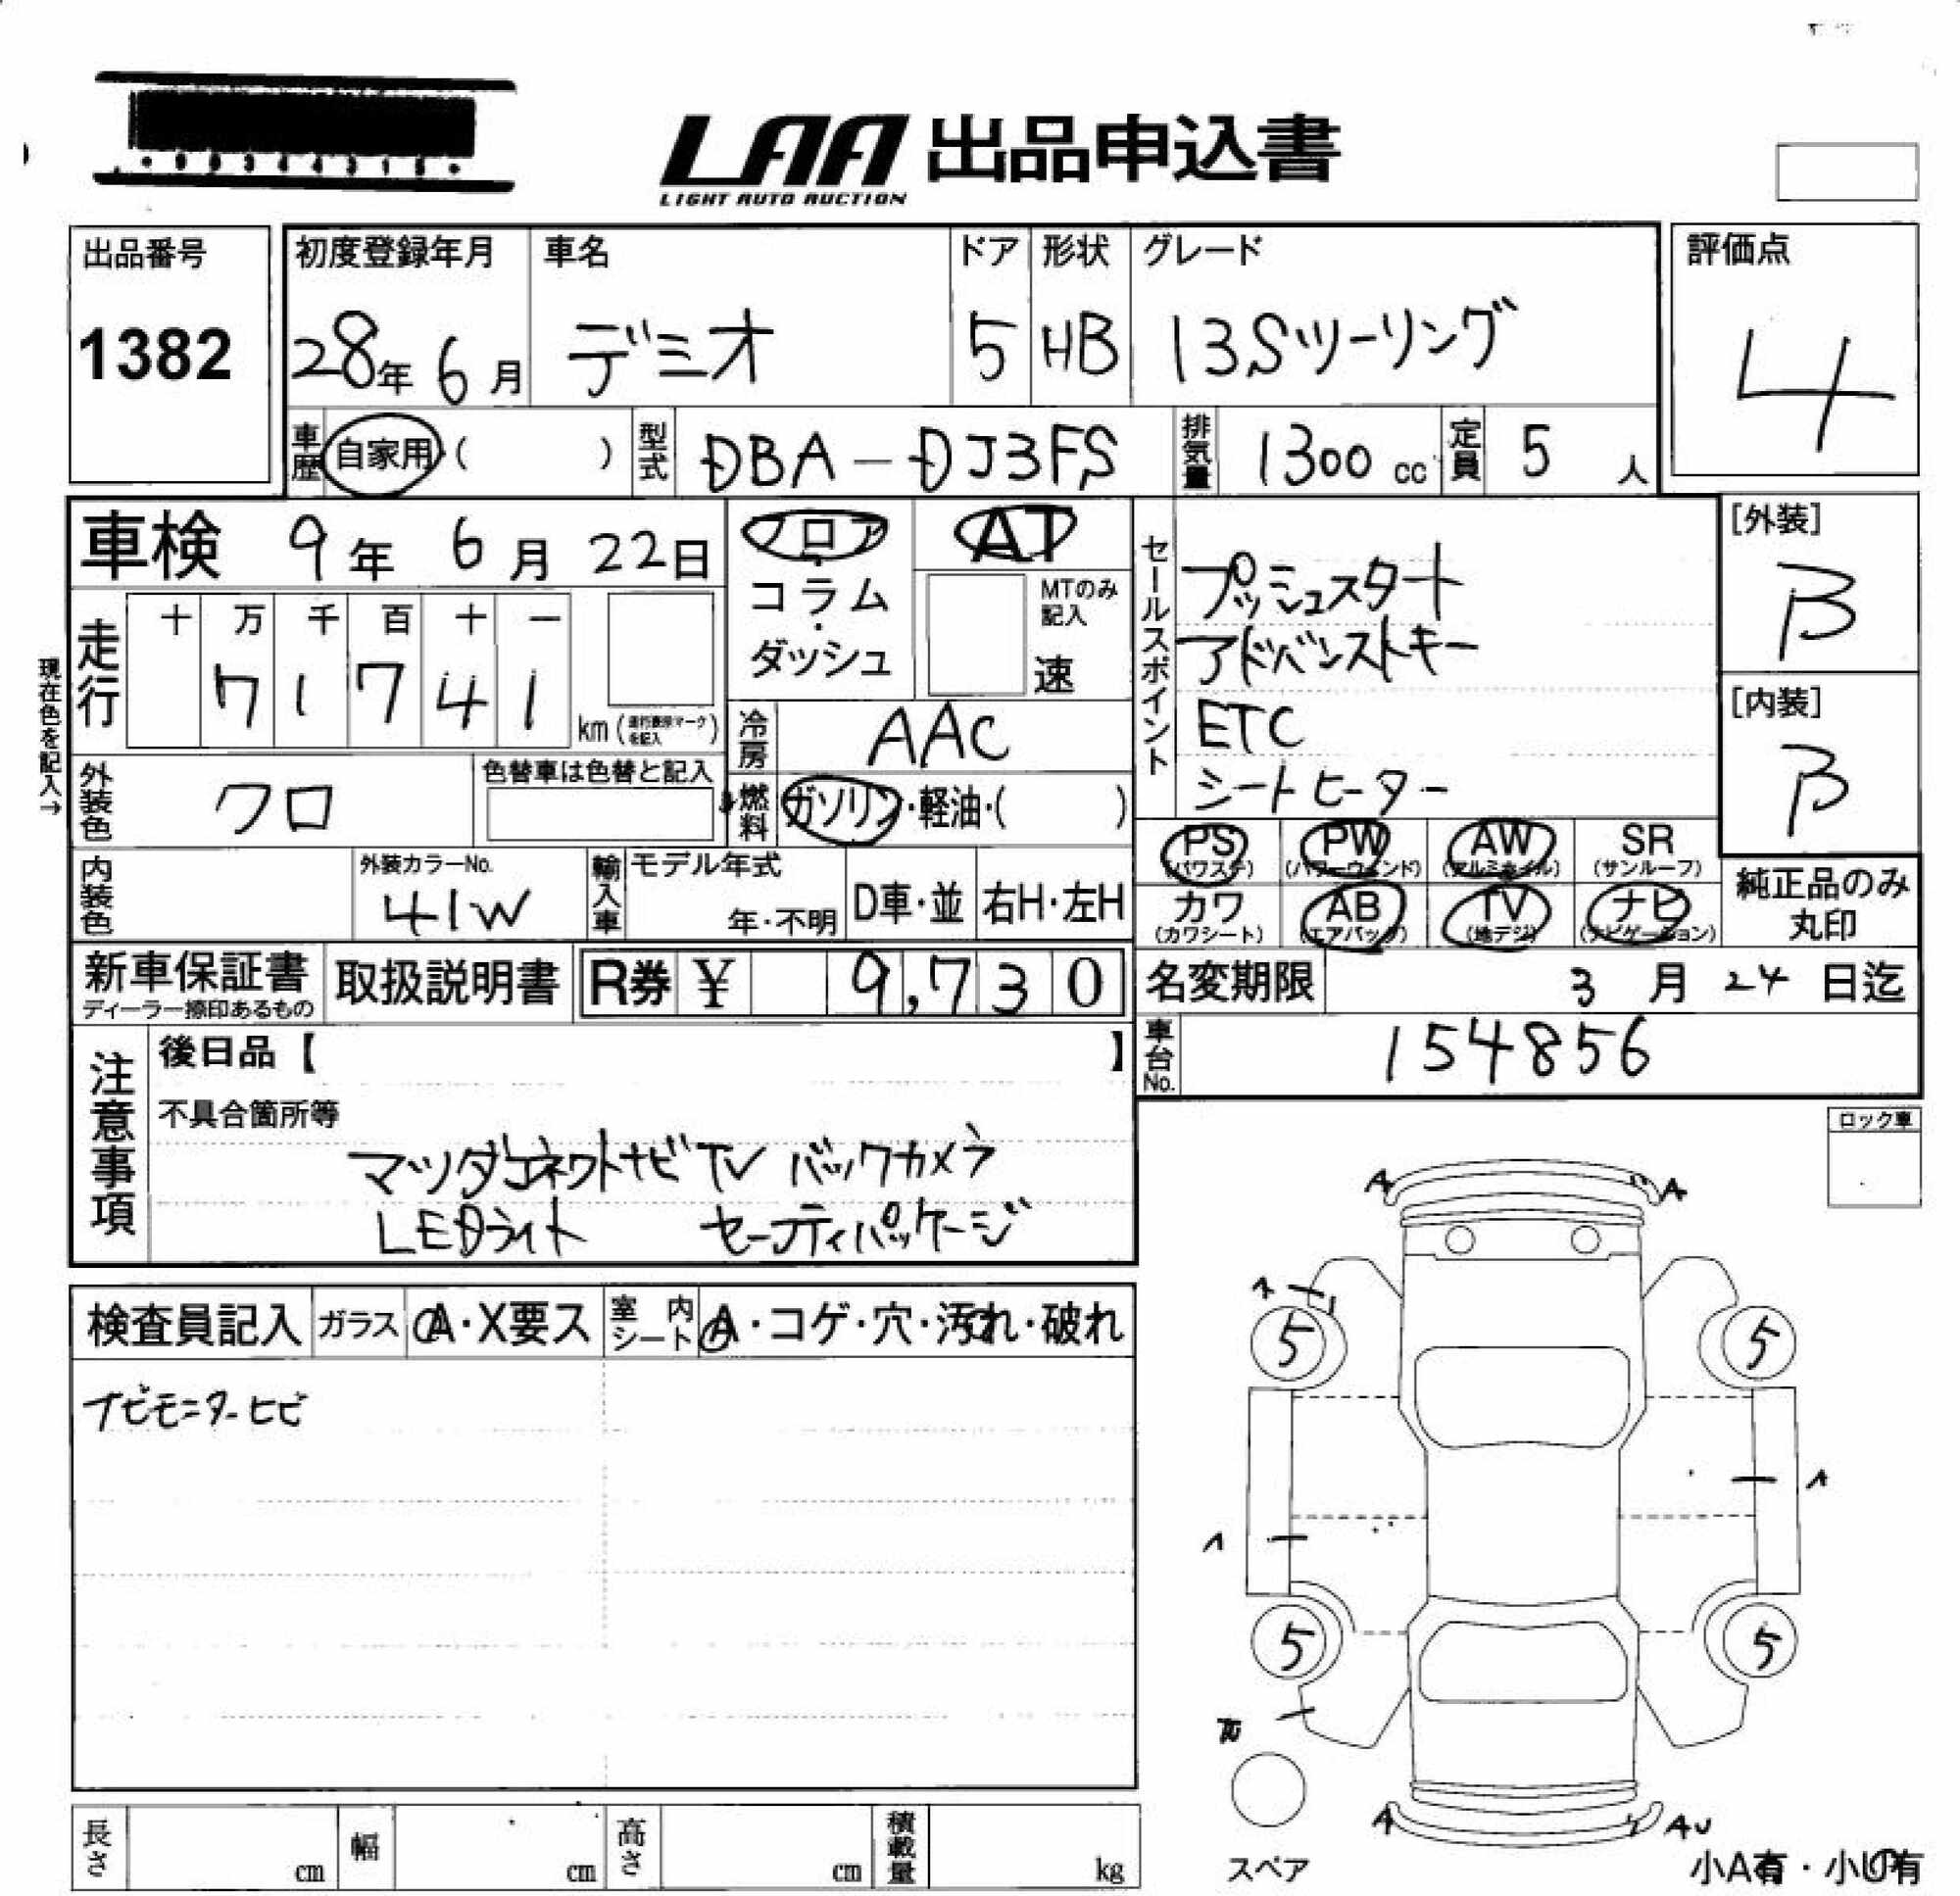 LAA 出品申込書
LIGHT AUTO AUCTION
出品番号
1382
初度登録年月
28年 6月
車名
デミオ
ドア
5
形状
HB
グレード
13Sツーリング
評価点
4
車歴 自家用 ( )
型式 DBA-DJ3FS
排気量 1300 cc
定員 5 人
車検 9年 6月 22日
フロア
コラム
・
ダッシュ
AT
MTのみ
記入
速
セールスポイント
プッシュスタート
アドバンストキー
ETC
シートヒーター
[外装]
B
[内装]
B
現在色を記入→
走行
十 万 千 百 十 一
7 1 7 4 1
km
冷房 AAC
外装色 クロ
色替車は色替と記入
燃料 ガソリン・軽油・( )
内装色
外装カラーNo.
41W
輸入車
モデル年式
年・不明
D車・並
右H・左H
PS (パワステ)
PW (パワーウィンド)
AW (アルミホイル)
SR (サンルーフ)
カワ (カワシート)
AB (エアバッグ)
TV (地デジ)
ナビ (ナビゲーション)
純正品のみ
丸印
新車保証書
ディーラー捺印あるもの
取扱説明書
R券 ¥ 9,730
名変期限 3月 24日迄
車台No. 154856
注意事項
後日品【 】
不具合箇所等
マツダコネクトナビ TV バックカメラ
LEDライト セーフティパッケージ
ロック車
検査員記入
ガラス A・X要ス
室内シート A・コゲ・穴・汚れ・破れ
ナビモニターヒビ
A A
A
5 5
A
A
5 5
A AU
スペア
長さ cm
幅 cm
高さ cm
積載量 kg
小A有・小U有